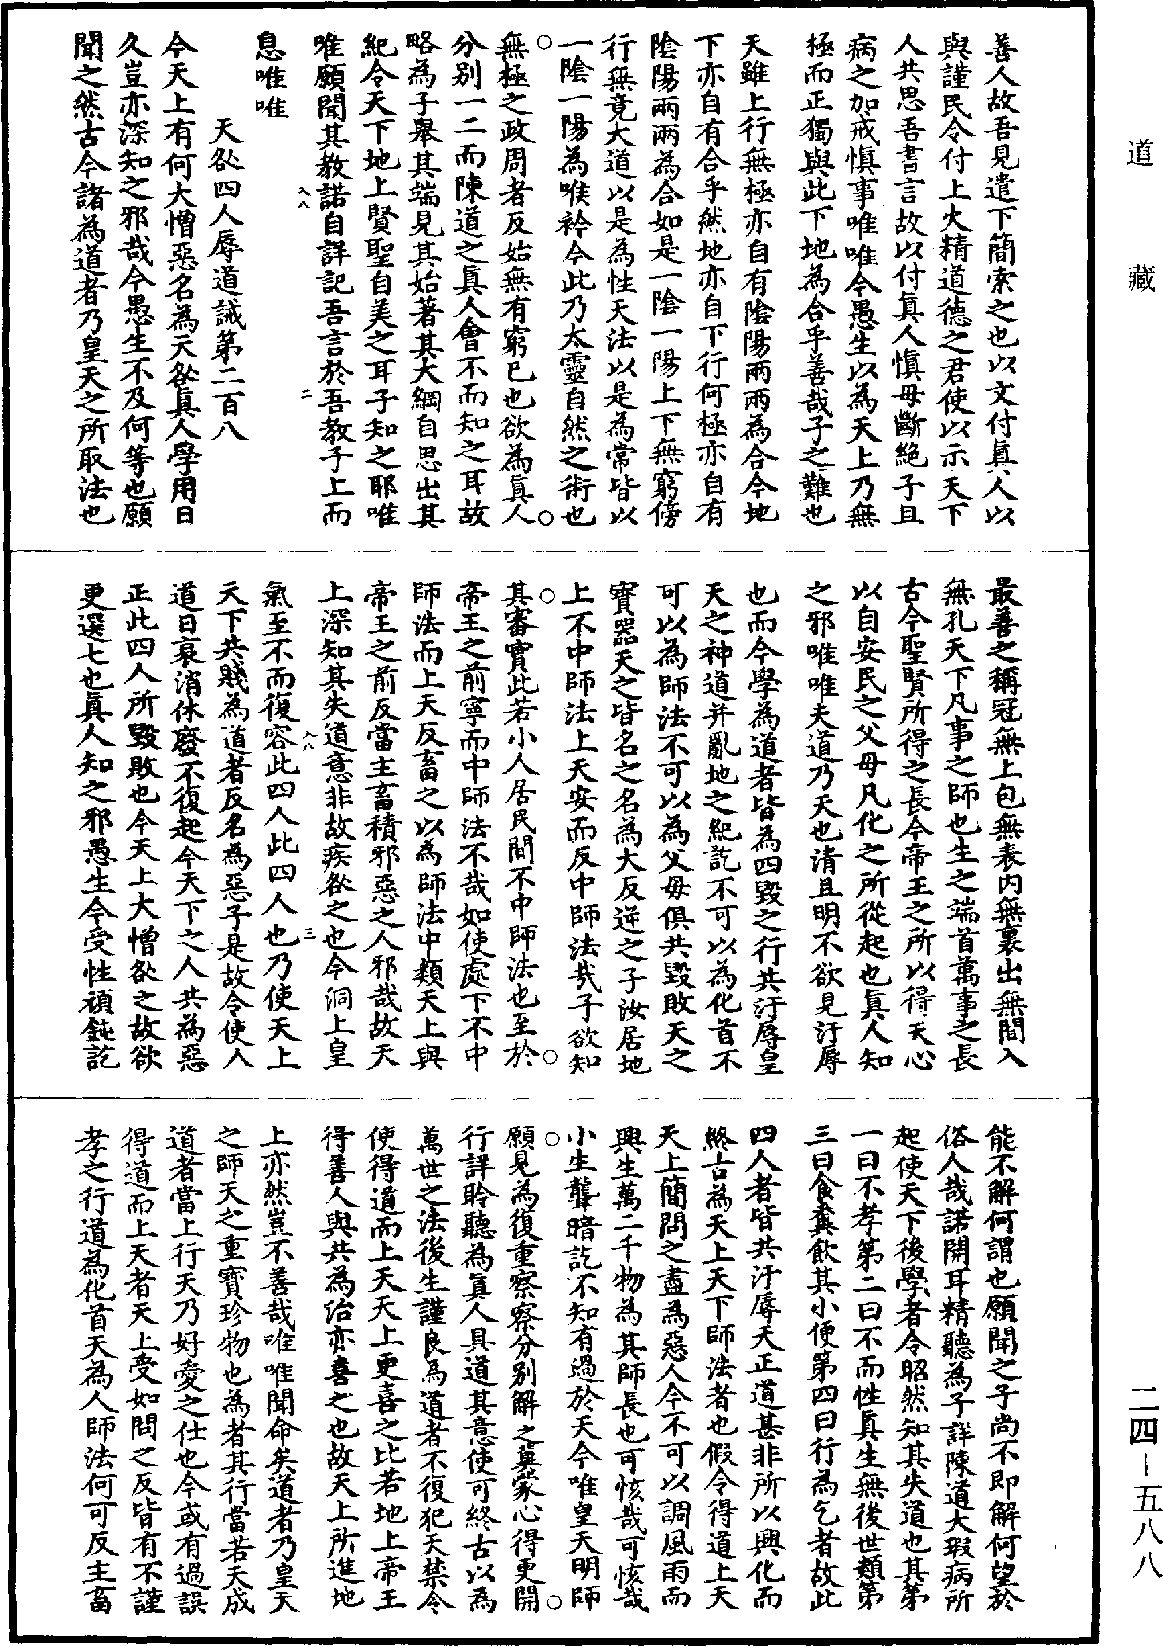 善人故吾見遣下簡索之也以文付真人以
與謹民令付上火精道德之君使以示天下
人共思吾書言故以付真人慎毋斷絕子且
病之加戒慎事唯唯今愚生以為天上乃無
極而正獨與此下地為合乎善哉子之難也
天雖上行無極亦自有陰陽兩兩為合今地
下亦自有合乎然地亦自下行何極亦自有
陰陽兩兩為合如是一陰一陽上下無窮傍
行無竟大道以是為性天法以是為常皆以
一陰一陽為喉衿今此乃太靈自然之術也
無極之政周者反始無有窮已也欲為真人
分別一二而陳道之真人會不而知之耳故
略為子舉其端見其始著其大綱自思出其
紀令天下地上賢聖自美之耳子知之耶唯
唯願聞其教諾自詳記吾言於吾教子上而
息唯唯
天咎四人辱道誡第二百八
今天上有何大憎惡名為天咎真人學用日
久豈亦深知之邪哉今愚生不及何等也願
聞之然古今諸為道者乃皇天之所取法也
最善之稱冠無上包無表內無裏出無間入
無孔天下凡事之師也生之端首萬事之長
古今聖賢所得之長今帝王之所以得天心
以自安民之父母凡化之所從起也真人知
之邪唯唯夫道乃天也清且明不欲見汙辱
也而今學為道者皆為四毀之行共汙辱皇
天之神道并亂地之紀訖不可以為化首不
可以為師法不可以為父母俱共毀敗天之
寶器天之皆名之名為大反逆之子汝居地
上不中師法上天安而反中師法哉子欲知
其審實此若小人居民間不中師法也至於
帝王之前寧而中師法不哉如使處下不中
師法而上天反畜之以為師法中類天上與
帝王之前反當主畜積邪惡之人邪哉故天
上深知其失道意非故疾咎之也今洞上皇
氣至不而復容此四人此四人也乃使天上
天下共賤為道者反名為惡子是故令使人
道日衰消休廢不復起今天下之人共為惡
正此四人所毀敗也今天上大憎咎之故欲
更選七也真人知之邪愚生今受性頑鈍訖
能不解何謂也願聞之子尚不即解何望於
俗人哉諾開耳精聽為子詳陳道大瑕病所
起使天下後學者令昭然知其失道也其第
一曰不孝第二曰不而性真生無後世類第
三曰食糞飲其小便第四曰行為乞者故此
四人者皆共汙辱天正道甚非所以興化而
終古為天上天下師法者也假令得道上天
天上簡問之盡為惡人今不可以調風雨而
興生萬二千物為其師長也可㤥哉可㤥哉
小生聾暗訖不知有過於天今唯皇天明師
願見為復重察察分別解之冀蒙心得更開
行詳聆聽為真人具道其意使可終古以為
萬世之法後生謹良為道者不復犯天禁令
使得道而上天天上更喜之比若地上帝王
得善人與共為治亦喜之也故天上所進地
上亦然豈不善哉唯唯聞命矣道者乃皇天
之師天之重寶珍物也為者其行當若天成
道者當上行天乃好愛之仕也今或有過誤
得道而上天者天上受如問之反皆有不謹
孝之行道為化首天為人師法何可反主畜
道藏
二四—五八八
入八
二
入八
三